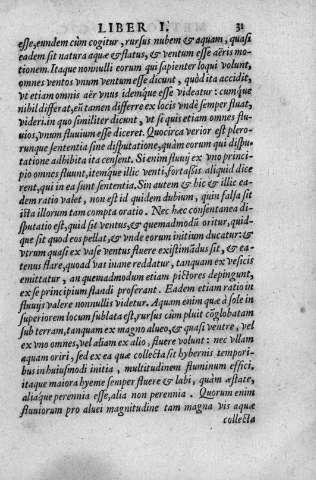 LIBER I. 31
esse, eundem cùm cogitur, rursus nubem & aquam, quasi
eadem sit natura aquæ & status, & ventum esse aëris mo-
tionem. Itaque nonnulli eorum qui sapienter loqui volunt,
omnes ventos vnum ventum esse dicunt, quòd ita accidit,
vt etiam omnis aër vnus idemque esse videatur: cumque
nihil differat, eũ tamen differre ex locis vndè semper fluat,
videri. in quo similiter dicunt, vt si quis etiam omnes flu-
uios, vnum fluuium esse diceret. Quocirca verior est plero-
runque sententia sine disputatione, quàm eorum qui dispu-
tatione adhibita ita censent. Si enim fluuij ex vno princi-
pio omnes fluunt, itemque illic venti, fortaßis aliquid dice
rent, qui in ea sunt sententia. Sin autem & hic & illic ea-
dem ratio valet, non est id quidem dubium, quin falsa sit
icta illorum tam compta oratio. Nec hæc consentanea di-
sputatio est, quid sit ventus, & quemadmodũ oritur, quid-
que sit quod eos pellat, & vnde eorum initium ducatur: &
vtrum quasi ex vase ventus fluere existimãdus sit, & ea-
tenus flare, quoad vas inane reddatur, tanquam ex vesicis
emittatur, an quemadmodum etiam pictores depingunt,
ex se principium flandi proferant. Eadem etiam ratio in
fluuijs valere nonnullis videtur. Aquam enim quæ à sole in
superiorem locum sublata est, rursus cùm pluit cõglobatam
sub terram, tanquam ex magno alueo, & quasi ventre, vel
ex vno omnes, vel aliam ex alio, fluere volunt: nec vllam
aquam oriri, sed ex ea quæ collecta sit hybernis tempori-
bus in huiusmodi initia, multitudinem fluminum effici,
itaque maiora hyeme semper fluere & labi, quàm æstate,
aliaque perennia esse, alia non perennia. Quorum enim
fluuiorum pro aluei magnitudine tam magna vis aquæ
collecta